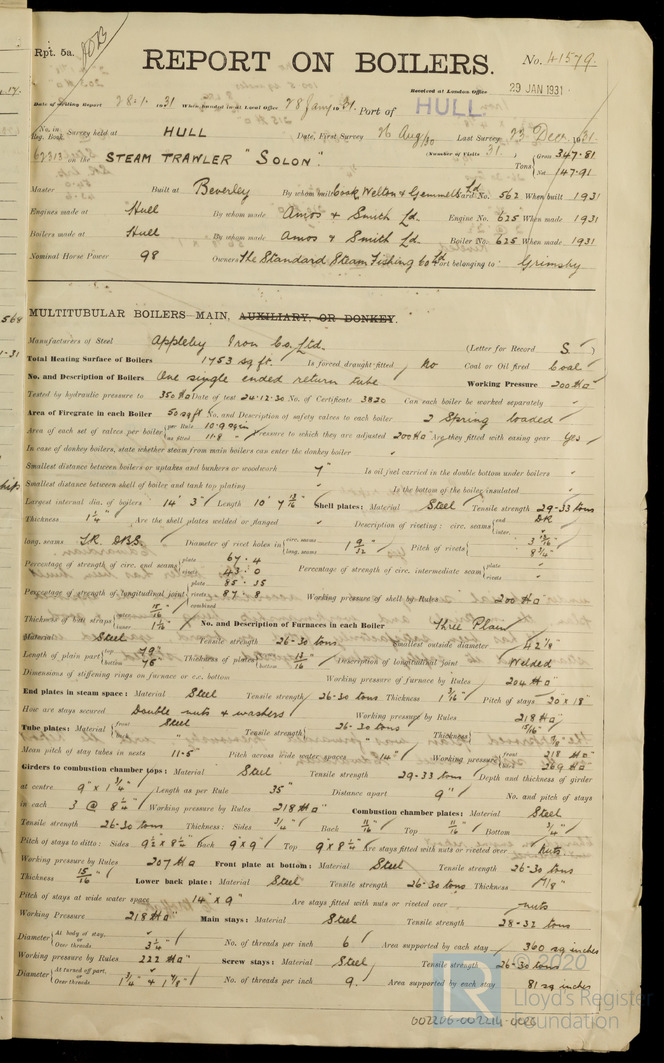 Rpt. 5a.
REPORT ON BOILERS.
No. 41579.
Received at London Office 29 JAN 1931
Date of writing Report 28.1. 1931 When handed in at Local Office 28 Jany 1931. Port of HULL.
No. in Reg. Book. Survey held at HULL Date, First Survey 26 Aug/30 Last Survey 23 Decr. 1931
(Number of Visits 31.)
STEAM TRAWLER "SOLON". Tons { Gross 347.81 Net 147.91
Master Built at Beverley By whom built Cook Welton & Gemmell Ld Yard No. 562 When built 1931
Engines made at Hull By whom made Amos & Smith Ld. Engine No. 625 When made 1931
Boilers made at Hull By whom made Amos & Smith Ld. Boiler No. 625 When made 1931
Nominal Horse Power 98 Owners The Standard Steam Fishing Co Ld Port belonging to Grimsby
MULTITUBULAR BOILERS—MAIN, AUXILIARY, OR DONKEY.
Manufacturers of Steel Appleby Iron Co. Ltd. (Letter for Record S.)
Total Heating Surface of Boilers 1753 sq ft. Is forced draught fitted No Coal or Oil fired Coal
No. and Description of Boilers One single ended return tube Working Pressure 200
Tested by hydraulic pressure to 350 Date of test 24.12.30 No. of Certificate 3820 Can each boiler be worked separately
Area of Firegrate in each Boiler 50 sq ft No. and Description of safety valves to each boiler 2 Spring loaded
Area of each set of valves per boiler { per Rule 10.9 sq in as fitted 11.8 Pressure to which they are adjusted 200 Are they fitted with easing gear Yes
In case of donkey boilers, state whether steam from main boilers can enter the donkey boiler
Smallest distance between boilers or uptakes and bunkers or woodwork 7" Is oil fuel carried in the double bottom under boilers
Smallest distance between shell of boiler and tank top plating Is the bottom of the boiler insulated
Largest internal dia. of boilers 14' 3" Length 10' Shell plates: Material Steel Tensile strength 29-33 tons
Thickness 1 1/4" Are the shell plates welded or flanged Description of riveting: circ. seams { end DR inter.
long. seams TR. DBS Diameter of rivet holes in { circ. seams long. seams 1 9/32" Pitch of rivets { 8 3/4"
Percentage of strength of circ. end seams { plate 67.4 rivets 43.0 Percentage of strength of circ. intermediate seam { plate rivets
Percentage of strength of longitudinal joint { plate 85.35 rivets 87.8 combined Working pressure of shell by Rules 200
Thickness of butt straps { outer 15/16" inner 1 1/16" No. and Description of Furnaces in each Boiler Three Plain
Material Steel Tensile strength 26-30 tons Smallest outside diameter 42 1/8"
Length of plain part { top 79 bottom 75 Thickness of plates { crown bottom 13/16" Description of longitudinal joint Welded
Dimensions of stiffening rings on furnace or c.c. bottom Working pressure of furnace by Rules 204
End plates in steam space: Material Steel Tensile strength 26-30 tons Thickness 1 3/16" Pitch of stays 20 x 18"
How are stays secured Double nuts & washers Working pressure by Rules 218
Tube plates: Material { front back Steel Tensile strength { 26-30 tons Thickness { 15/16" 7/8"
Mean pitch of stay tubes in nests 11.5" Pitch across wide water spaces 14" Working pressure { front 218 back 269
Girders to combustion chamber tops: Material Steel Tensile strength 29-33 tons Depth and thickness of girder
at centre 9" x 1 1/4" Length as per Rule 35" Distance apart 9" No. and pitch of stays
in each 3 @ 8 1/4" Working pressure by Rules 218 Combustion chamber plates: Material Steel
Tensile strength 26-30 tons Thickness: Sides 3/4" Back 11/16" Top 11/16" Bottom 3/4"
Pitch of stays to ditto: Sides Back 9" x 9" Top 9" x 8 1/4" Are stays fitted with nuts or riveted over Nuts
Working pressure by Rules 207 Front plate at bottom: Material Steel Tensile strength 26-30 tons
Thickness 15/16" Lower back plate: Material Steel Tensile strength 26-30 tons Thickness 7/8"
Pitch of stays at wide water space 14" x 9" Are stays fitted with nuts or riveted over nuts
Working Pressure 218 Main stays: Material Steel Tensile strength 28-32 tons
Diameter { At body of stay, or Over threads 3 1/4" No. of threads per inch 6 Area supported by each stay 360 sq inches
Working pressure by Rules 222 Screw stays: Material Steel Tensile strength 26-30 tons
Diameter { At turned off part, or Over threads No. of threads per inch 9. Area supported by each stay 81 sq inches
© 2020
LR
Lloyd's Register
Foundation
002206-002214-0023